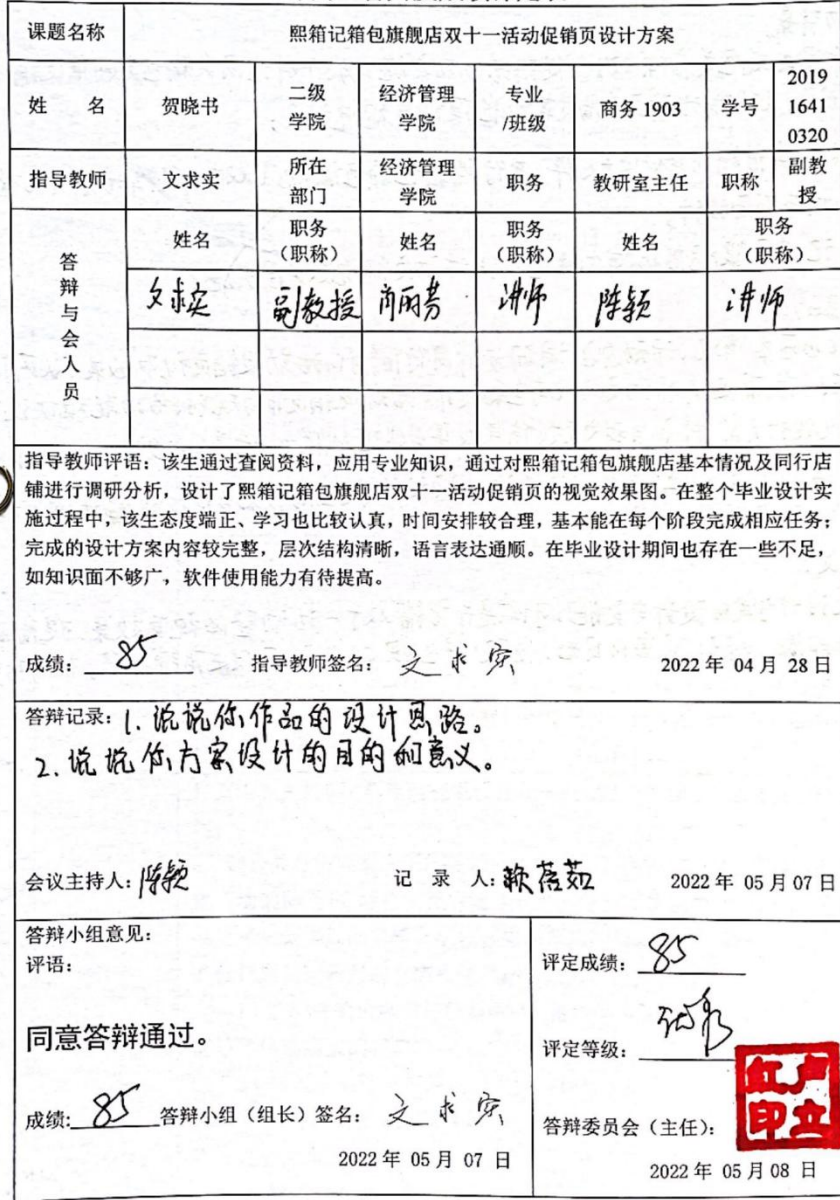 课题名称 熙箱记箱包旗舰店双十一活动促销页设计方案
姓 名 贺晓书 二级学院 经济管理学院 专业/班级 商务1903 学号 201916410320
指导教师 文求实 所在部门 经济管理学院 职务 教研室主任 职称 副教授
答辩与会人员 姓名 职务（职称） 姓名 职务（职称） 姓名 职务（职称）
文求实 副教授 肖丽芳 讲师 陈颖 讲师
指导教师评语：该生通过查阅资料，应用专业知识，通过对熙箱记箱包旗舰店基本情况及同行店
铺进行调研分析，设计了熙箱记箱包旗舰店双十一活动促销页的视觉效果图。在整个毕业设计实
施过程中，该生态度端正、学习也比较认真，时间安排较合理，基本能在每个阶段完成相应任务；
完成的设计方案内容较完整，层次结构清晰，语言表达通顺。在毕业设计期间也存在一些不足，
如知识面不够广，软件使用能力有待提高。
成绩：85 指导教师签名：文求实 2022 年 04 月 28 日
答辩记录：1. 说说你作品的设计思路。
2. 说说你方案设计的目的和意义。
会议主持人：陈颖 记 录 人： 2022 年 05 月 07 日
答辩小组意见：
评语：
同意答辩通过。
成绩：85 答辩小组（组长）签名：文求实
2022 年 05 月 07 日
评定成绩：85
评定等级：
答辩委员会（主任）：卢立红印
2022 年 05 月 08 日